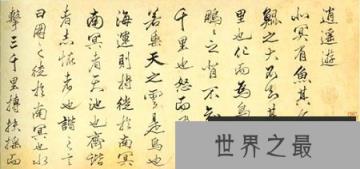 逍遙遊
北冥有魚其
鯤之大不知其
里也化而為鳥
鵬之背不知
千里也怒而
若垂天之雲是鳥也
海運則將徙於南冥
南冥者天池也齊諧
者志怪者也諧之言
曰鵬之徙於南冥也水
擊三千里摶扶搖而
世界之最